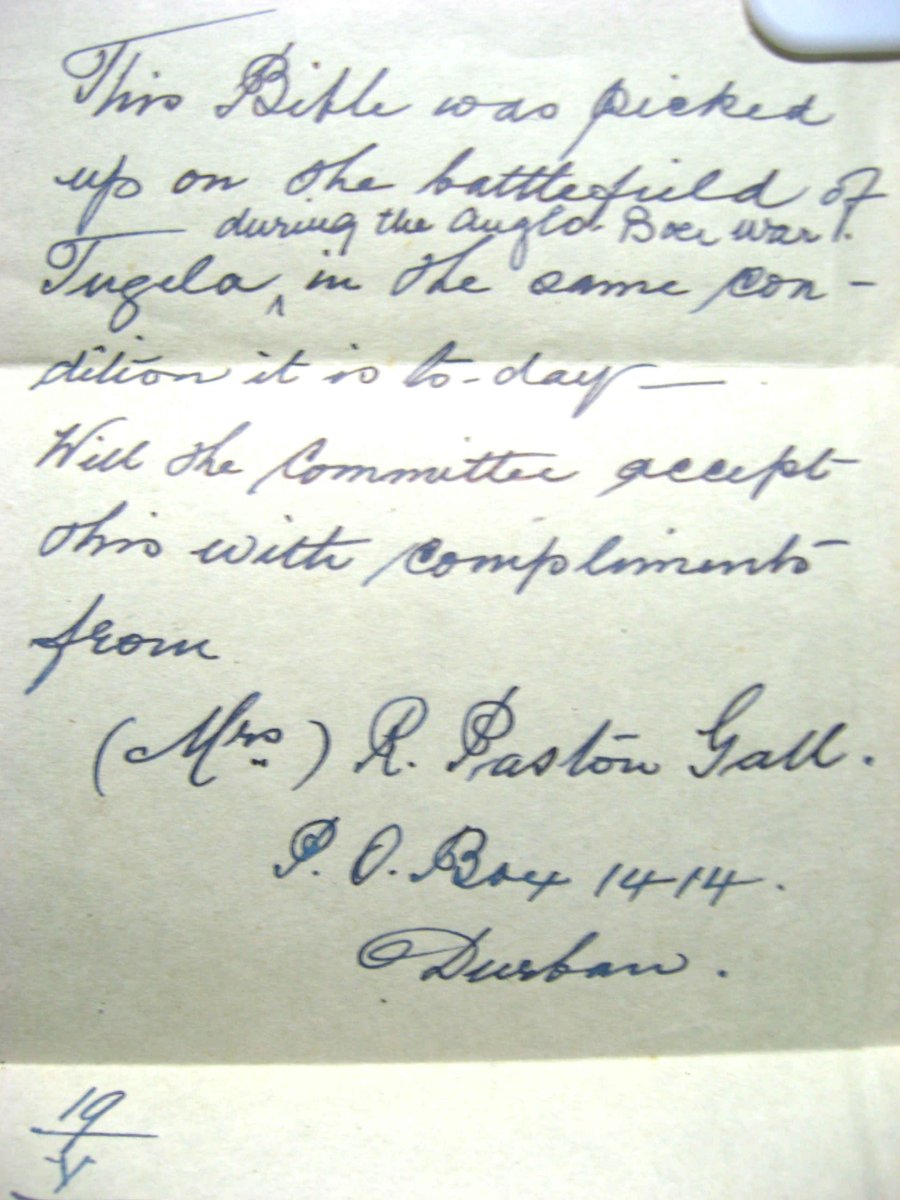 This Bible was picked
up on the battlefield of
during the Anglo-Boer war.
Tugela ^ in the same con-
dition it is to-day —
Will the Committee accept
this with compliments
from
(Mrs.) R. Paston Gall.
P. O. Box 1414.
Durban.
19